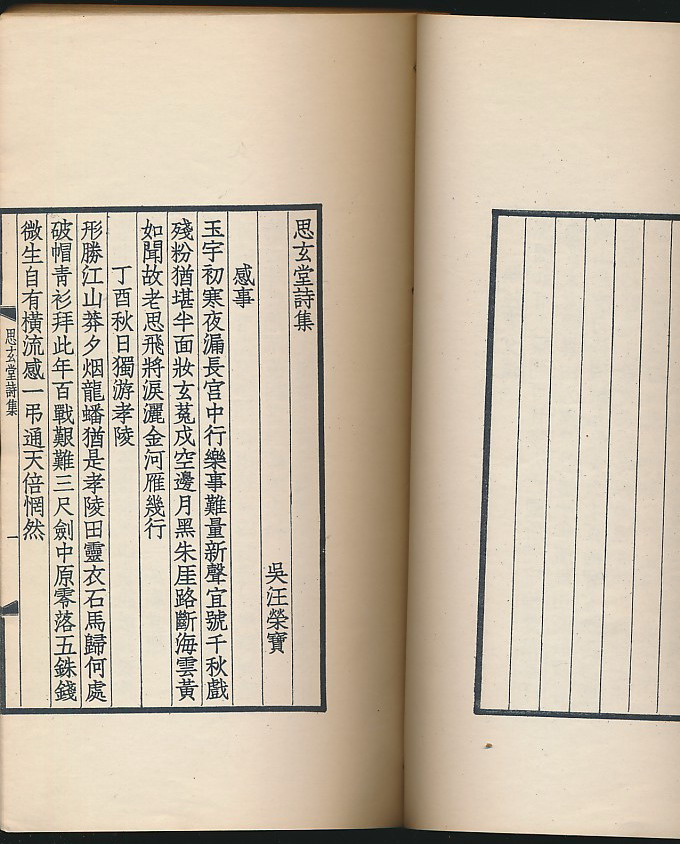 思玄堂詩集
吳汪榮寶
感事
玉宇初寒夜漏長宫中行樂事難量新聲宜號千秋戲
殘粉猶堪半面妝玄菟戍空邊月黑朱厓路斷海雲黃
如聞故老思飛將淚灑金河雁幾行
丁酉秋日獨游孝陵
形勝江山莽夕烟龍蟠猶是孝陵田靈衣石馬歸何處
破帽青衫拜此年百戰艱難三尺劍中原零落五銖錢
微生自有横流感一弔通天倍惘然
思玄堂詩集
一